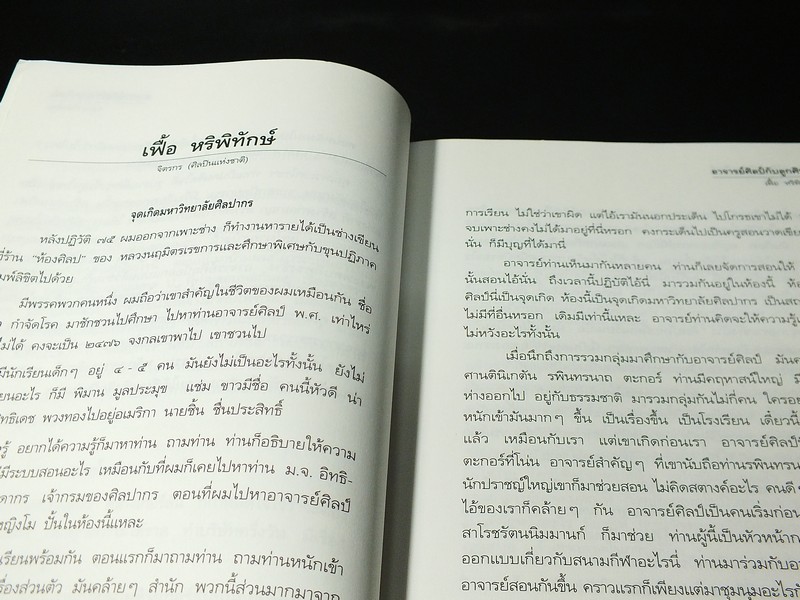 เฟื้อ หริพิทักษ์
จิตรกร (ศิลปินแห่งชาติ)
จุดเกิดมหาวิทยาลัยศิลปากร
หลังปฏิวัติ ๗๕ ผมออกจากเพาะช่าง ก็ทำงานหารายได้เป็นช่างเขียน
ที่ร้าน "ห้องศิลป" ของ หลวงนฤมิตรเรขการและศึกษาพิเศษกับขุนปฏิภาค
พิมพ์ลิขิตไปด้วย
มีพรรคพวกคนหนึ่ง ผมถือว่าเขาสำคัญในชีวิตของผมเหมือนกัน ชื่อ
กำจัดโรค มาชักชวนไปศึกษา ไปหาท่านอาจารย์ศิลป์ พ.ศ. เท่าไหร่
ไม่ได้ คงจะเป็น ๒๔๗๖ จงกลเขาพาไป เขาชวนไป
มีนักเรียนเด็กๆ อยู่ ๔ - ๕ คน มันยังไม่เป็นอะไรทั้งนั้น ยังไม่
อะไร ก็มี พิมาน มูลประมุข แช่ม ขาวมีชื่อ คนนี้หัวดี น่า
สิทธิเดช พวงทองไปอยู่อเมริกา นายชิ้น ชื่นประสิทธิ์
รู้ อยากได้ความรู้ก็มาหาท่าน ถามท่าน ท่านก็อธิบายให้ความ
มีระบบสอนอะไร เหมือนกับที่ผมก็เคยไปหาท่าน ม.จ. อิทธิ-
เจ้ากรมของศิลปากร ตอนที่ผมไปหาอาจารย์ศิลป์
หญิงโม ปั้นในห้องนี้แหละ
เรียนพร้อมกัน ตอนแรกก็มาถามท่าน ถามท่านหนักเข้า
เรื่องส่วนตัว มันคล้ายๆ สำนัก พวกนี้ส่วนมากมาจาก
อาจารย์ศิลป์กับลูกศิ
เฟื้อ หริพิ
การเรียน ไม่ใช่ว่าเขาผิด แต่ไอ้เรามันนอกประเด็น ไปโกรธเขาไม่ได้
จบเพาะช่างคงไม่ได้มาอยู่ที่นี่หรอก คงกระเด็นไปเป็นครูสอนวาดเขีย
นั่น ก็มีบุญที่ได้มานี่
อาจารย์ท่านเห็นมากันหลายคน ท่านก็เลยจัดการสอนให้
นั้นสอนไอ้นั่น ถึงเวลานี้ปฏิบัติไอ้นี่ มารวมกันอยู่ในห้องนี้ ห้อ
ศิลป์นี่เป็นจุดเกิด ห้องนี้เป็นจุดเกิดมหาวิทยาลัยศิลปากร เป็นสถ
ไม่มีที่อื่นหรอก เดิมมีเท่านี้แหละ อาจารย์ท่านคิดจะให้ความรู้
ไม่หวังอะไรทั้งนั้น
เมื่อนึกถึงการรวมกลุ่มมาศึกษากับอาจารย์ศิลป์ มัน
ศานตินิเกตัน รพินทรนาถ ตะกอร์ ท่านมีคฤหาสน์ใหญ่ มี
ห่างออกไป อยู่กับธรรมชาติ มารวมกลุ่มกันไม่กี่คน ใครอย
หนักเข้ามันมากๆ ขึ้น เป็นเรื่องขึ้น เป็นโรงเรียน เดี๋ยวนี้
แล้ว เหมือนกับเรา แต่เขาเกิดก่อนเรา อาจารย์ศิลป์
ตะกอร์ที่โน่น อาจารย์สำคัญๆ ที่เขานับถือท่านรพินทรน
นักปราชญ์ใหญ่เขาก็มาช่วยสอน ไม่คิดสตางค์อะไร คนดี
ไอ้ของเราก็คล้ายๆ กัน อาจารย์ศิลป์เป็นคนเริ่มก่อน
สาโรชรัตนนิมมานก์ ก็มาช่วย ท่านผู้นี้เป็นหัวหน้าก
ออกแบบเกี่ยวกับสนามกีฬาอะไรนี่ ท่านมาร่วมกับอา
อาจารย์สอนกันขึ้น คราวแรกก็เพียงแต่มาชุมนุมอะไรกั